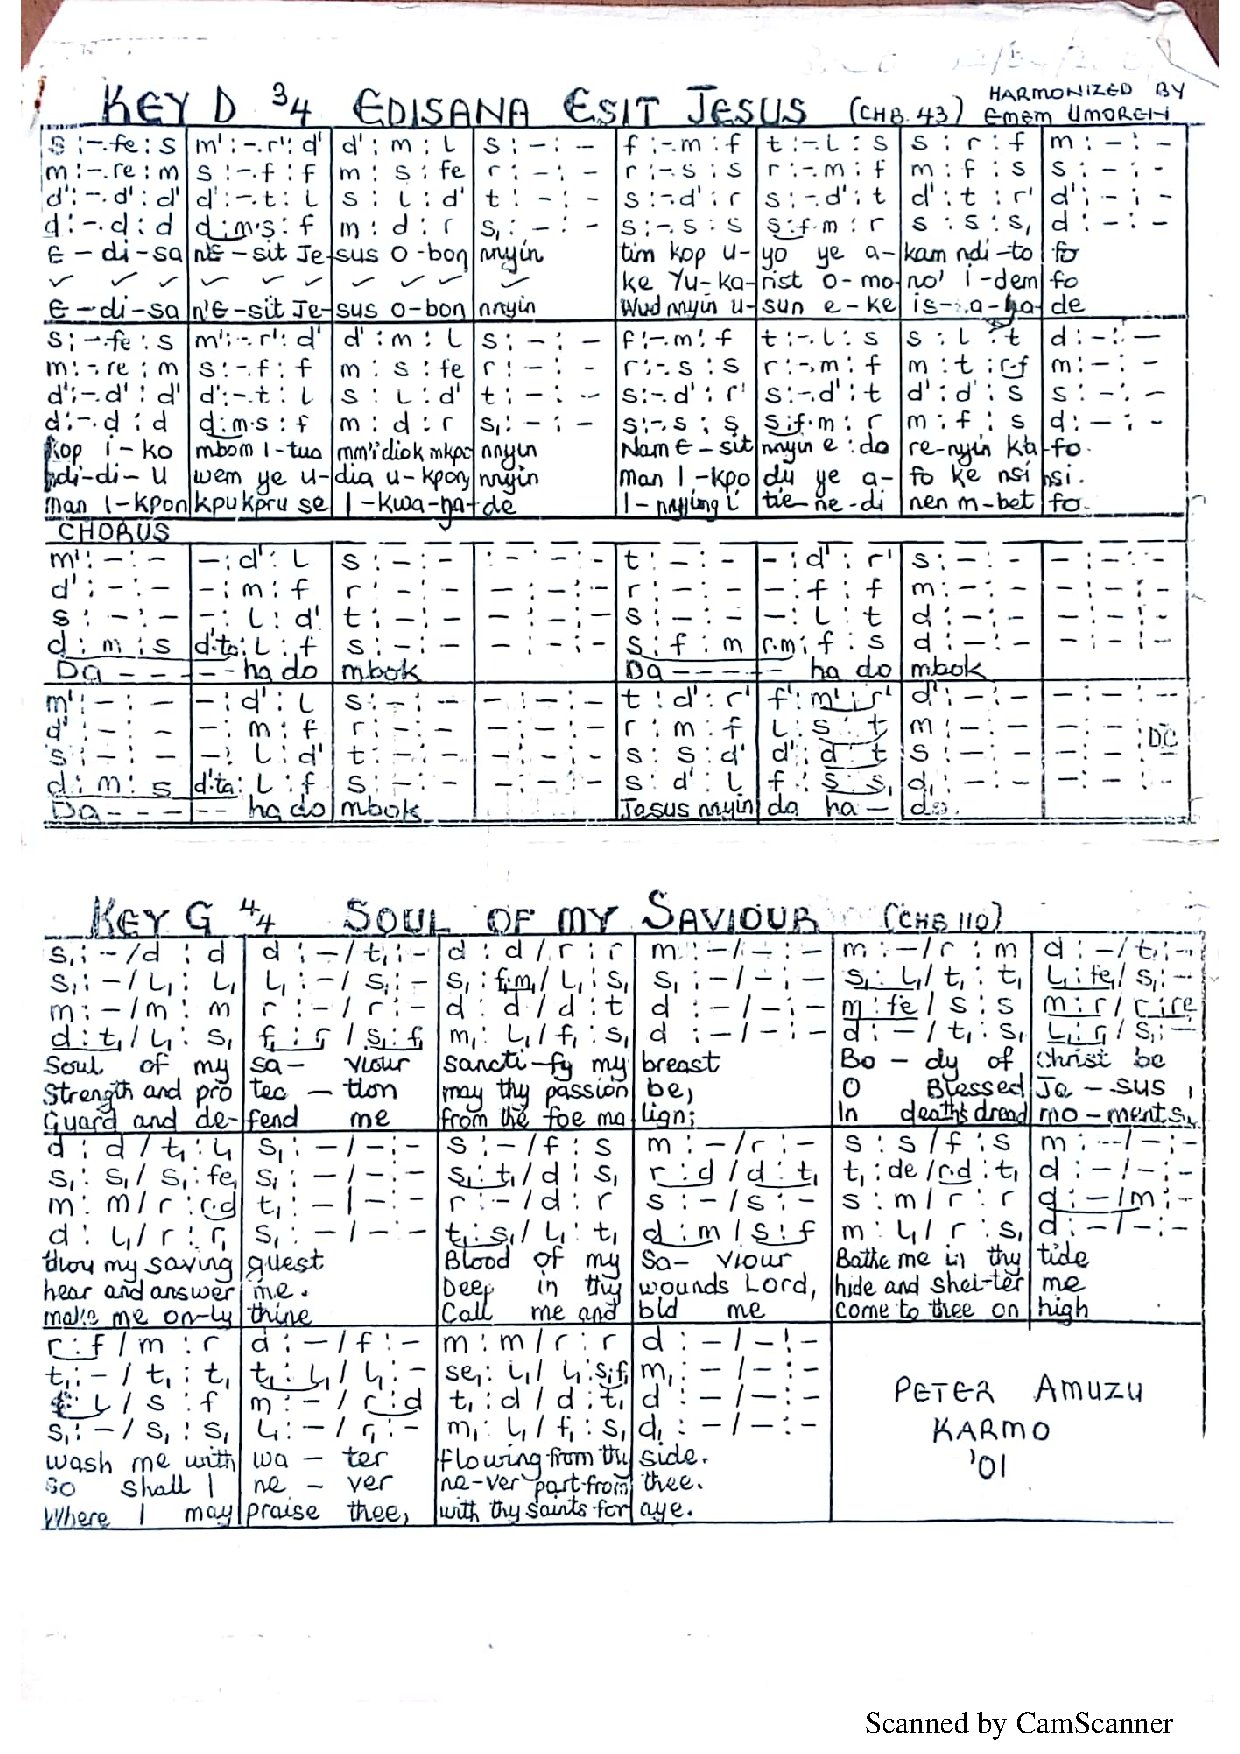 KEY D 3/4 EDISANA ESIT JESUS (CHB. 43) HARMONIZED BY
EMEM UMOREN
s :-.fe : s | m' :-.r' : d' | d' : m : l | s : - : - | f :-.m : f | t :-.l : s | s : r : f | m : - : -
m :-.re : m | s :-.f : f | m : s : fe | r : - : - | r :-.s : s | r :-.m : f | m : f : s | s : - : -
d' :-.d' : d' | d' :-.t : l | s : l : d' | t : - : - | s :-.d' : r | s :-.d' : t | d' : t : r' | d' : - : -
d :-.d : d | d : m.s : f | m : d : r | s, : - : - | s :-.s : s | s.f : m : r | s : s : s, | d : - : -
E - di - sa | n'E - sit Je- | sus O - bon | nnyin | tim kop u- | yo ye a- | kam ndi - to | fo
ke Yu - ka- | rist o - mo- | no' I - dem | fo
E - di - sa | n'E - sit Je- | sus o - bon | nnyin | Wud nnyin u- | sun e - ke | is - a - ha- | de
s :-.fe : s | m' :-.r' : d' | d' : m : l | s : - : - | f :-.m' : f | t :-.l : s | s : l : t | d : - : -
m :-.re : m | s :-.f : f | m : s : fe | r : - : - | r :-.s : s | r :-.m : f | m : t : r.f | m : - : -
d' :-.d' : d' | d' :-.t : l | s : l : d' | t : - : - | s :-.d' : r' | s :-.d' : t | d' : d' : s | s : - : -
d :-.d : d | d : m.s : f | m : d : r | s, : - : - | s :-.s : s | s.f : m : r | m : f : s | d : - : -
Kop i - ko | mbom I - tua | mm'i diok mkpo | nnyin | Nam E - sit | nnyin e : do | re - nyin ka | fo.
ndi - di - U | wem ye u- | dia u - kpon | nnyin | man I - kpo | du ye a- | fo ke nsi | nsi.
man I - kpon | kpukpru se | I - kwa - na- | de | I - nnying i | tie ne - di | nen m - bet | fo.
CHORUS
m' : - : - | - : d' : l | s : - : - | - : - : - | t : - : - | - : d' : r' | s : - : - | - : - : -
d' : - : - | - : m : f | r : - : - | - : - : - | r : - : - | - : f : f | m : - : - | - : - : -
s : - : - | - : l : d' | t : - : - | - : - : - | s : - : - | - : l : t | d : - : - | - : - : -
d : m : s | d'.ta : l : f | s : - : - | - : - : - | s : f : m | r.m : f : s | d : - : - | - : - : -
Da - - - | - - ha do | mbok | Da - - - - | - ha do | mbok
m' : - : - | - : d' : l | s : - : - | - : - : - | t : d' : r' | f' : m' : r' | d' : - : - | - : - : -
d' : - : - | - : m : f | r : - : - | - : - : - | r : m : f | l : s : t | m : - : - | - : - : -
s : - : - | - : l : d' | t : - : - | - : - : - | s : s : d' | d' : d : t | s : - : - | - : - : - : DC
d : m : s | d'.ta : l : f | s : - : - | - : - : - | s : d' : l | f : s : s, | d, : - : - | - : - : -
Da - - - | - - ha do | mbok | Jesus nnyin | da ha - | do.
KEY G 4/4 SOUL OF MY SAVIOUR (CHB 110)
s, : - / d : d | d : - / t, : - | d : d / r : r | m : - / - : - | m : - / r : m | d : - / t, : -
s, : - / l, : l, | l, : - / s, : - | s, : f,m, / l, : s, | s, : - / - : - | s, : l, / t, : t, | l, : fe, / s, : -
m : - / m : m | r : - / r : - | d : d / d : t | d : - / - : - | m : fe / s : s | m : r / r : re
d : t, / l, : s, | f, : r, / s, : f, | m, : l, / f, : s, | d : - / - : - | d : - / t, : s, | l, : r, / s, : -
Soul of my | sa - viour | sancti - fy my | breast | Bo - dy of | Christ be
Strength and pro | tec - tion | may thy passion | be, | O Blessed | Je - sus,
Guard and de- | fend me | from the foe ma | lign; | In death's dread | mo - ments,
d : d / t, : l, | s, : - / - : - | s : - / f : s | m : - / r : - | s : s / f : s | m : - / - : -
s, : s, / s, : fe, | s, : - / - : - | s, : t, / d : s, | r : d / d : t, | t, : de / r.d : t, | d : - / - : -
m : m / r : r.d | t, : - / - : - | r : - / d : r | s : - / s : - | s : m / r : r | d : - / m : -
d : l, / r : r, | s, : - / - : - | t, : s, / l, : t, | d : m / s : f | m : l, / r : s, | d : - / - : -
thou my saving | guest | Blood of my | Sa - viour | Bathe me in thy | tide
hear and answer | me. | Deep in thy | wounds Lord, | hide and shel - ter | me
make me on - ly | thine | Call me and | bid me | come to thee on | high
r : f / m : r | d : - / f : - | m : m / r : r | d : - / - : -
t, : - / t, : t, | t, : l, / l, : - | se, : l, / l, : s,f, | m, : - / - : -
l / s : f | m : - / r : d | t, : d / d : t, | d : - / - : -
s, : - / s, : s, | l, : - / r, : - | m, : l, / f, : s, | d, : - / - : -
wash me with | wa - ter | flowing from thy | side.
so shall I | ne - ver | ne - ver part from | thee.
Where I may | praise thee, | with thy saints for | aye.
PETER AMUZU
KARMO
'01
Scanned by CamScanner